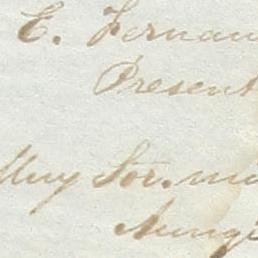 E. Fernan
Present
Muy Sor. mi
Aunq